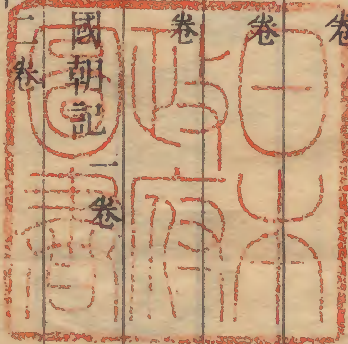 卷
卷
卷
國朝記一卷
二卷
日本
政府
圖書